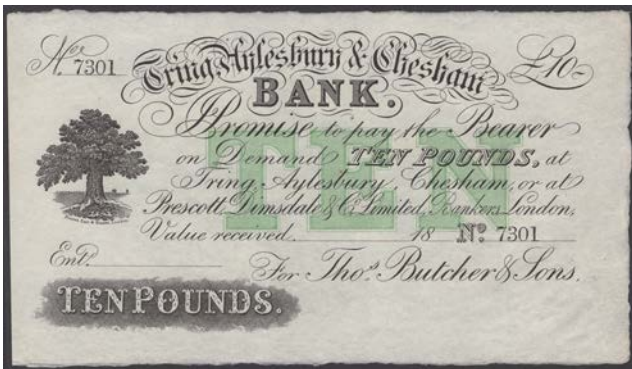 No. 7301
£10-
Tring, Aylesbury & Chesham
BANK.
Promise to pay the Bearer
on Demand TEN POUNDS, at
Tring, Aylesbury, Chesham, or at
Prescott, Dimsdale & Co. Limited, Bankers London,
Value received. 18 No. 7301
TEN
Entd.
For Thos. Butcher & Sons.
TEN POUNDS.